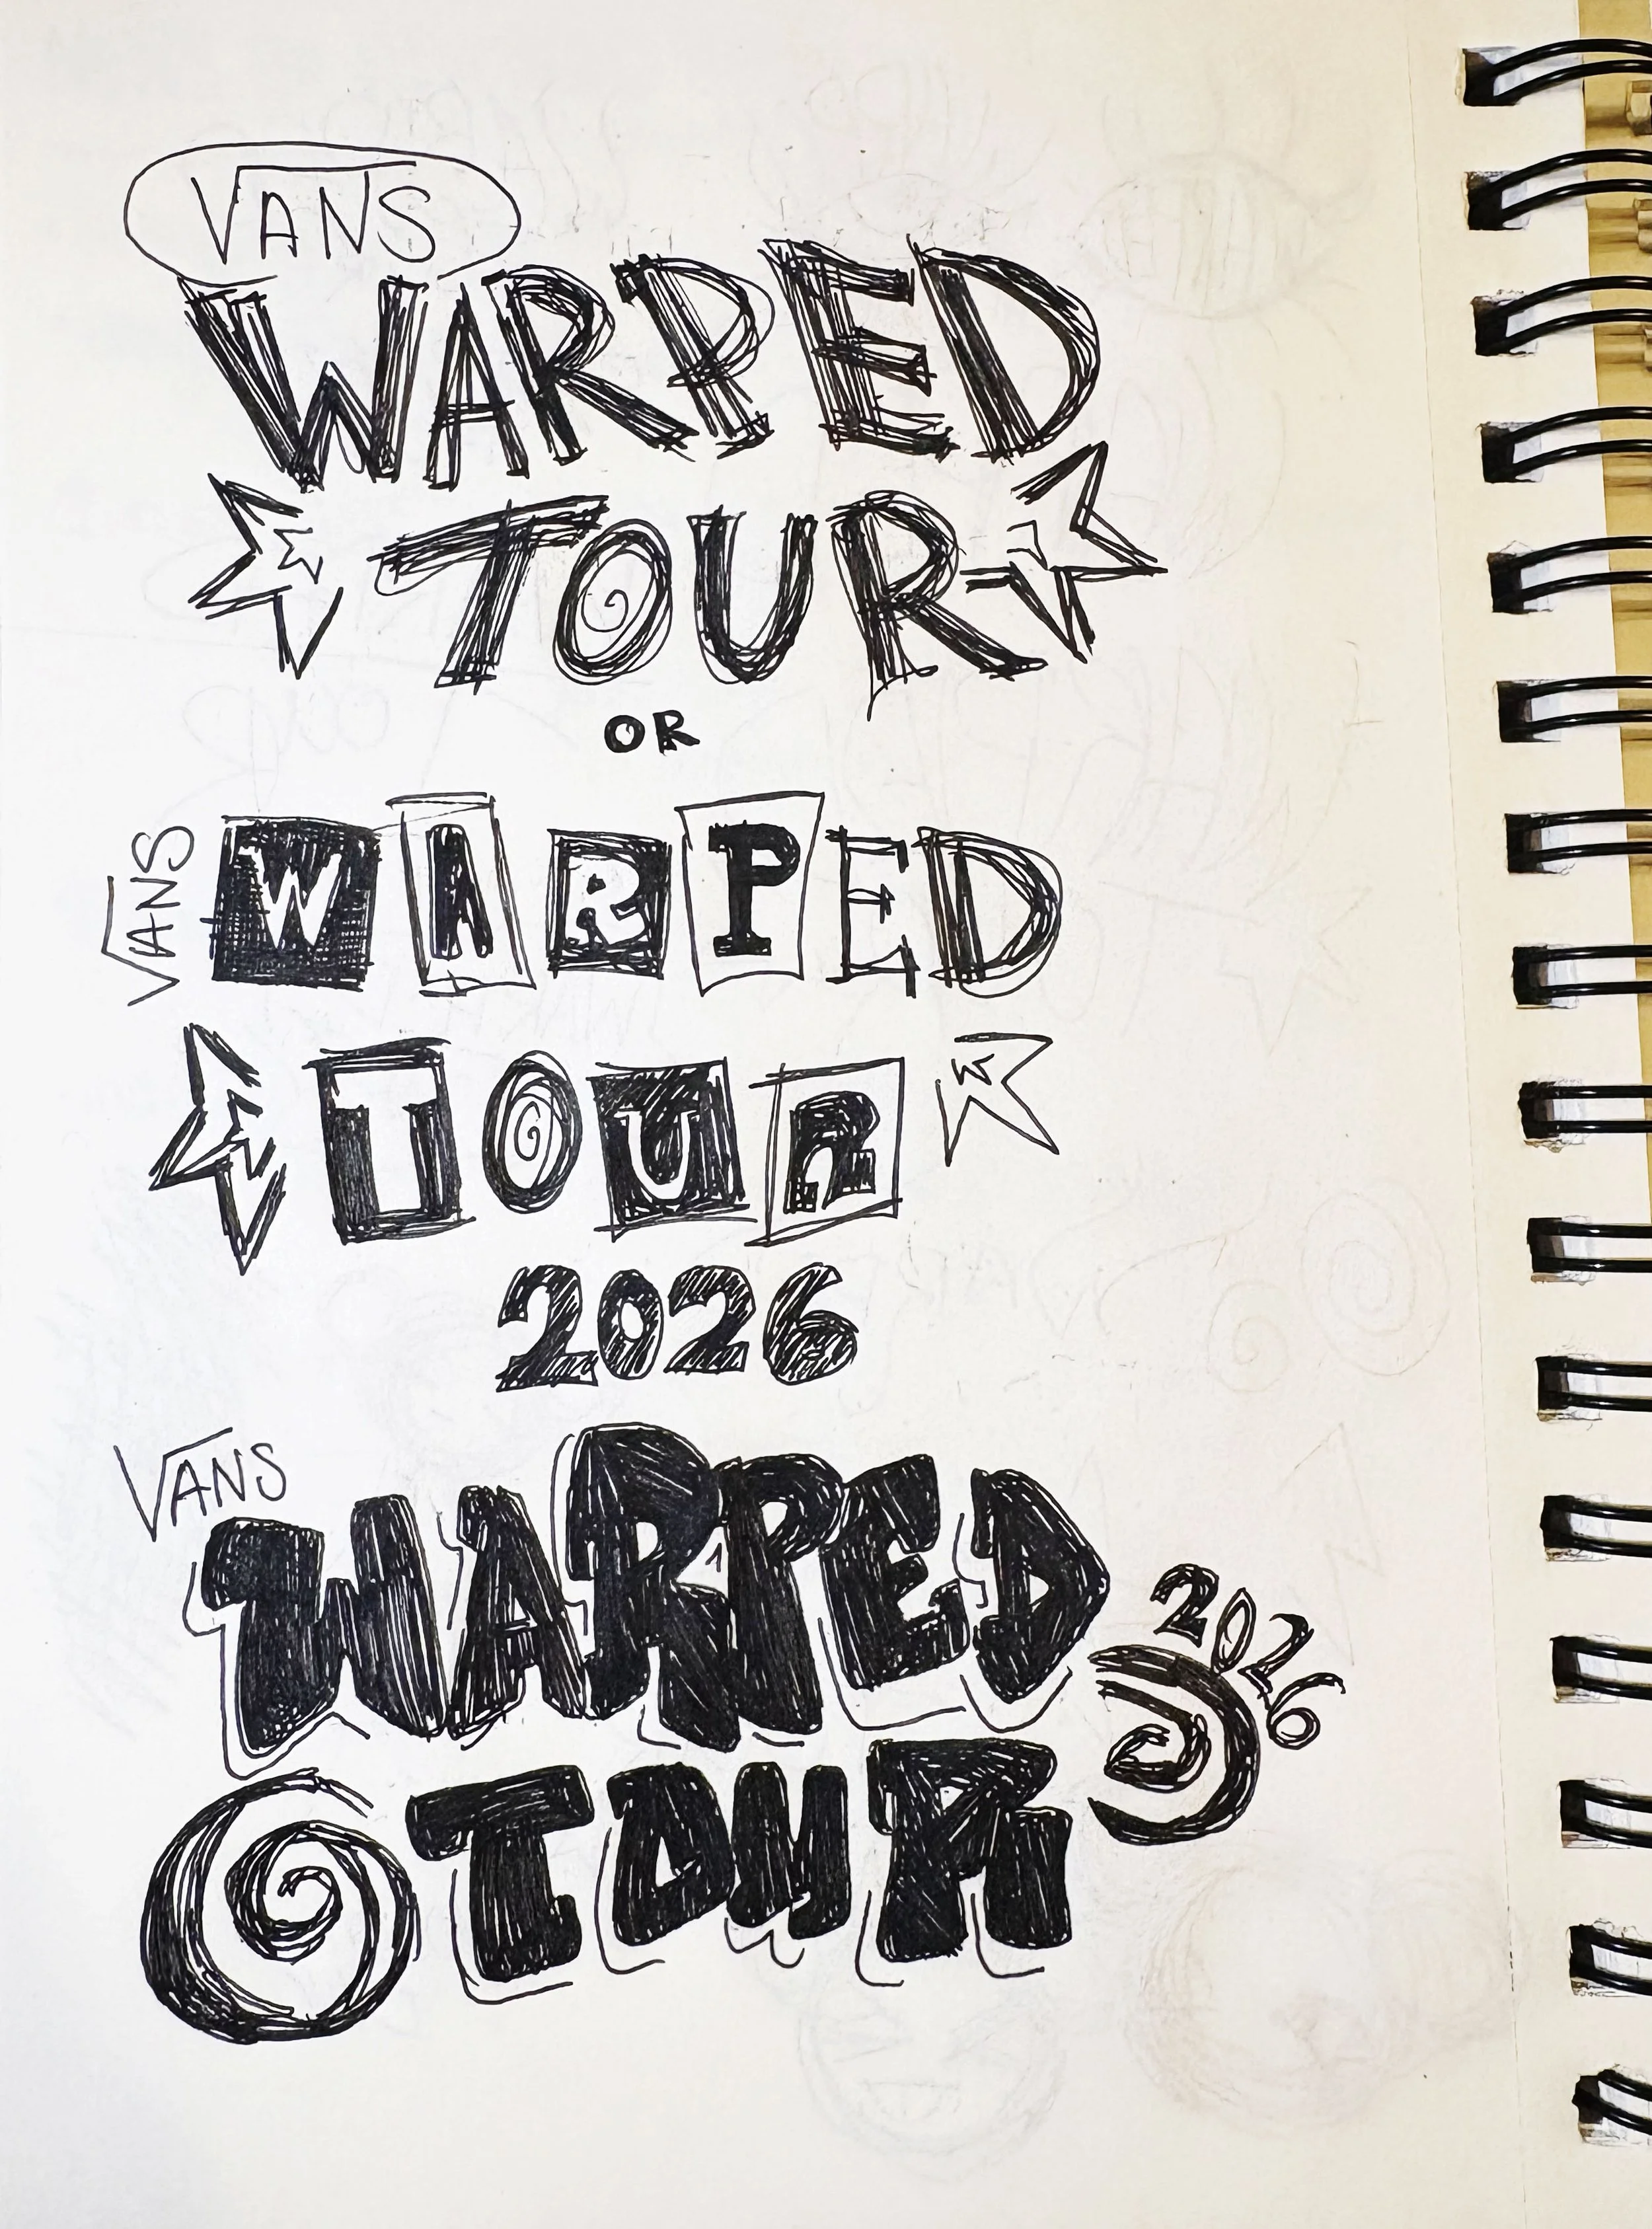 VANS
WARPED
TOUR
OR
VANS
WARPED
TOUR
2026
VANS
WARPED
2026
TOUR